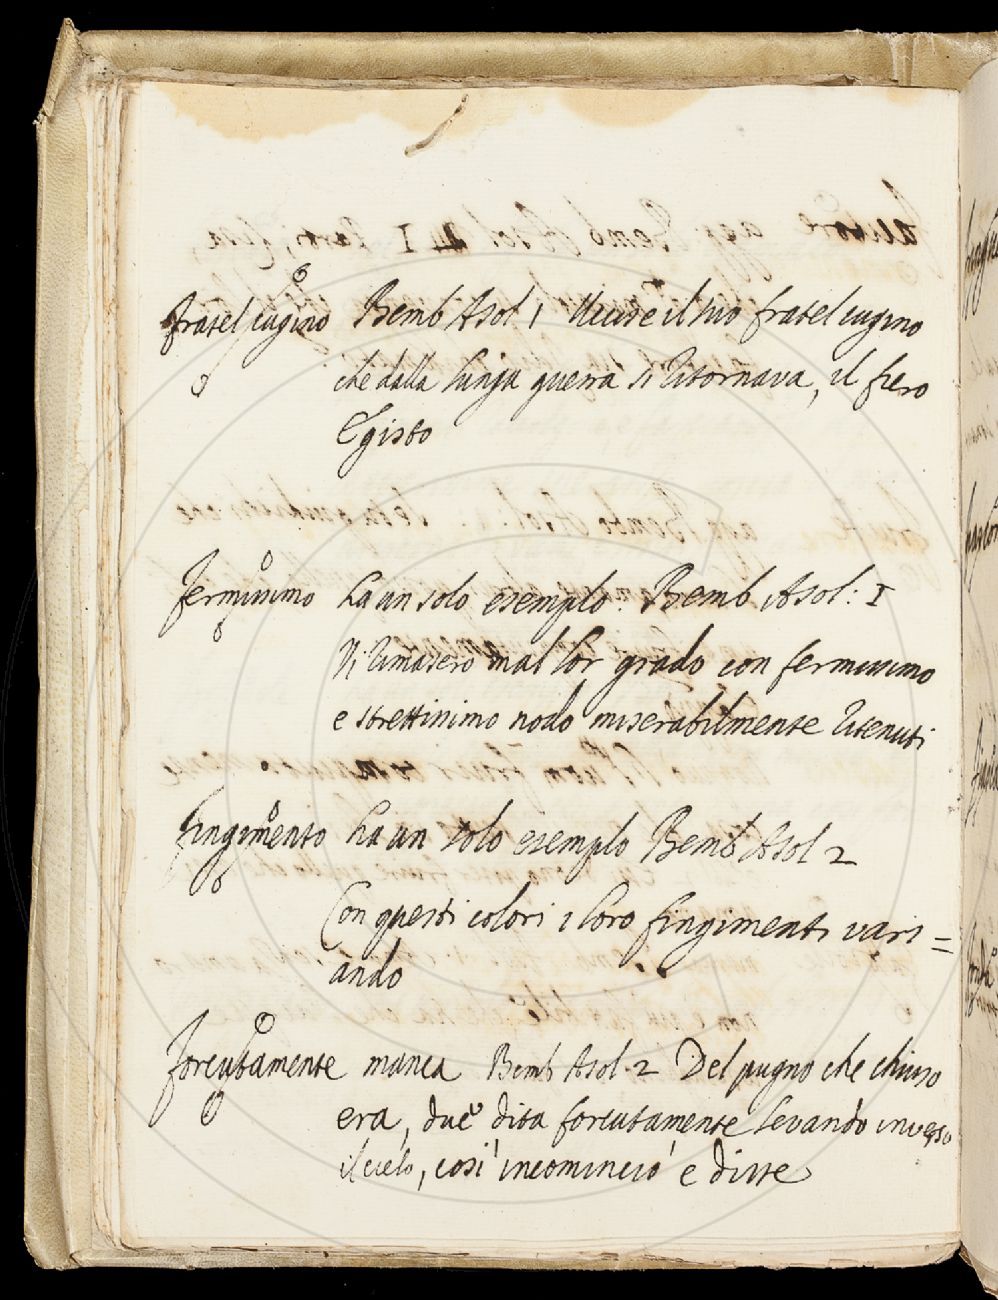 fratel cugino Bemb Asol 1 Uccise il suo fratel cugino
che dalla lunga guerra si ritornava, il fiero
Egisto
fermissimo ha un solo esemplo. Bemb Asol: I
Vi rimasero mal lor grado con fermissimo
e strettissimo nodo miserabilmente ritenuti
fingimento ha un solo esemplo Bemb Asol 2
Con questi colori i loro fingimenti vari=
ando
forcutamente manca Bemb Asol. 2 Del pugno che chiuso
era, due dita forcutamente levando inverso
il cielo, così incominciò e disse